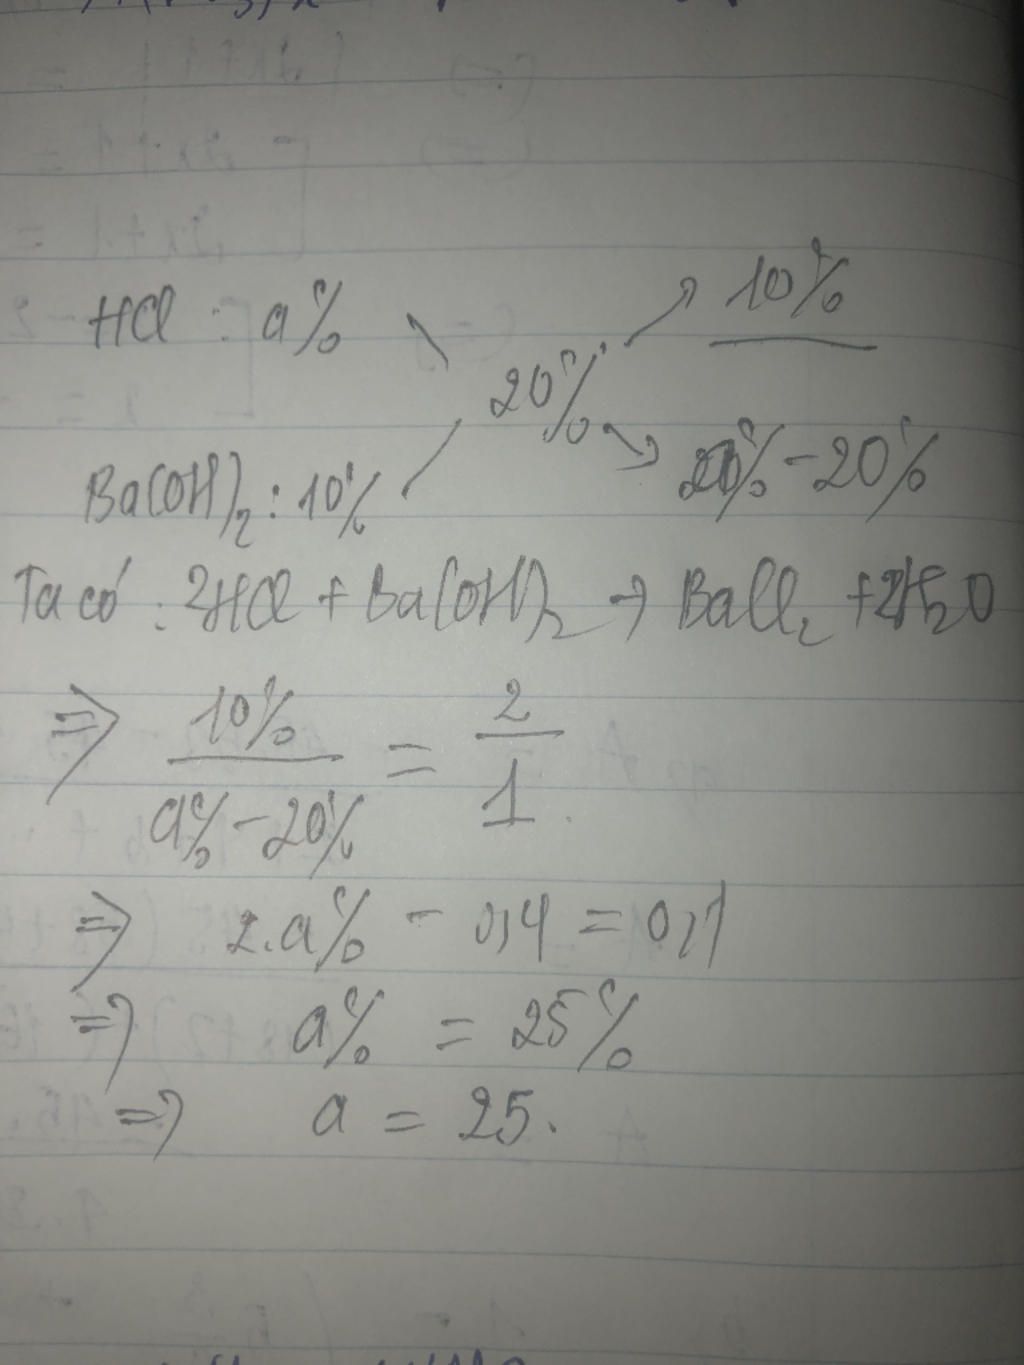 HCl : a%
10%
20%
Ba(OH)₂ : 10%
a% - 20%
Ta có : 2HCl + Ba(OH)₂ → BaCl₂ + 2H₂O
⇒ 10% / a% - 20% = 2 / 1
⇒ 2.a% - 0,4 = 0,1
⇒ a% = 25%
⇒ a = 25.